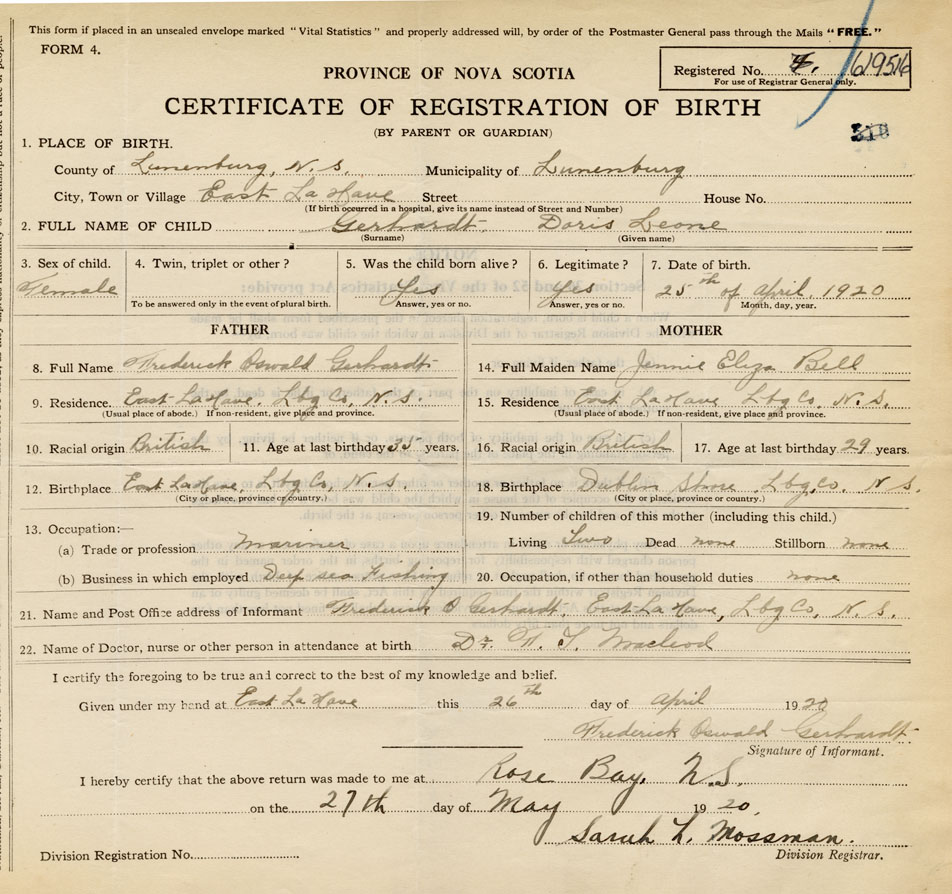 This form if placed in an unsealed envelope marked "Vital Statistics" and properly addressed will, by order of the Postmaster General pass through the Mails "FREE."
FORM 4.
Registered No. 61951
For use of Registrar General only.
PROVINCE OF NOVA SCOTIA
CERTIFICATE OF REGISTRATION OF BIRTH
(BY PARENT OR GUARDIAN)
310
1. PLACE OF BIRTH.
County of Lunenburg, N. S. Municipality of Lunenburg
City, Town or Village East La Have Street House No.
(If birth occurred in a hospital, give its name instead of Street and Number)
2. FULL NAME OF CHILD Gerhardt Doris Leone
(Surname) (Given name)
3. Sex of child. 4. Twin, triplet or other? 5. Was the child born alive? 6. Legitimate? 7. Date of birth.
Female Yes Yes 25th of April, 1920
To be answered only in the event of plural birth. Answer, yes or no. Answer, yes or no. Month, day, year.
FATHER MOTHER
8. Full Name Frederick Oswald Gerhardt 14. Full Maiden Name Jennie Eliza Bell
9. Residence. East La Have, Lbg Co, N. S. 15. Residence East La Have, Lbg Co, N. S.
(Usual place of abode.) If non-resident, give place and province. (Usual place of abode.) If non-resident, give place and province.
10. Racial origin British 11. Age at last birthday 35 years. 16. Racial origin British 17. Age at last birthday 29 years.
12. Birthplace East La Have, Lbg Co, N. S. 18. Birthplace Dublin Shore, Lbg, Co, N S.
(City or place, province or country.) (City or place, province or country.)
13. Occupation:— 19. Number of children of this mother (including this child.)
(a) Trade or profession Mariner Living Two Dead none Stillborn none
(b) Business in which employed Deep sea Fishing 20. Occupation, if other than household duties none
21. Name and Post Office address of Informant Frederick O Gerhardt, East La Have, Lbg Co, N. S.
22. Name of Doctor, nurse or other person in attendance at birth Dr. Macleod
I certify the foregoing to be true and correct to the best of my knowledge and belief.
Given under my hand at East La Have this 26th day of April 1920
Frederick Oswald Gerhardt
Signature of Informant.
I hereby certify that the above return was made to me at Rose Bay, N.S.
on the 27th day of May 1920
Sarah L. Mossman.
Division Registration No. Division Registrar.